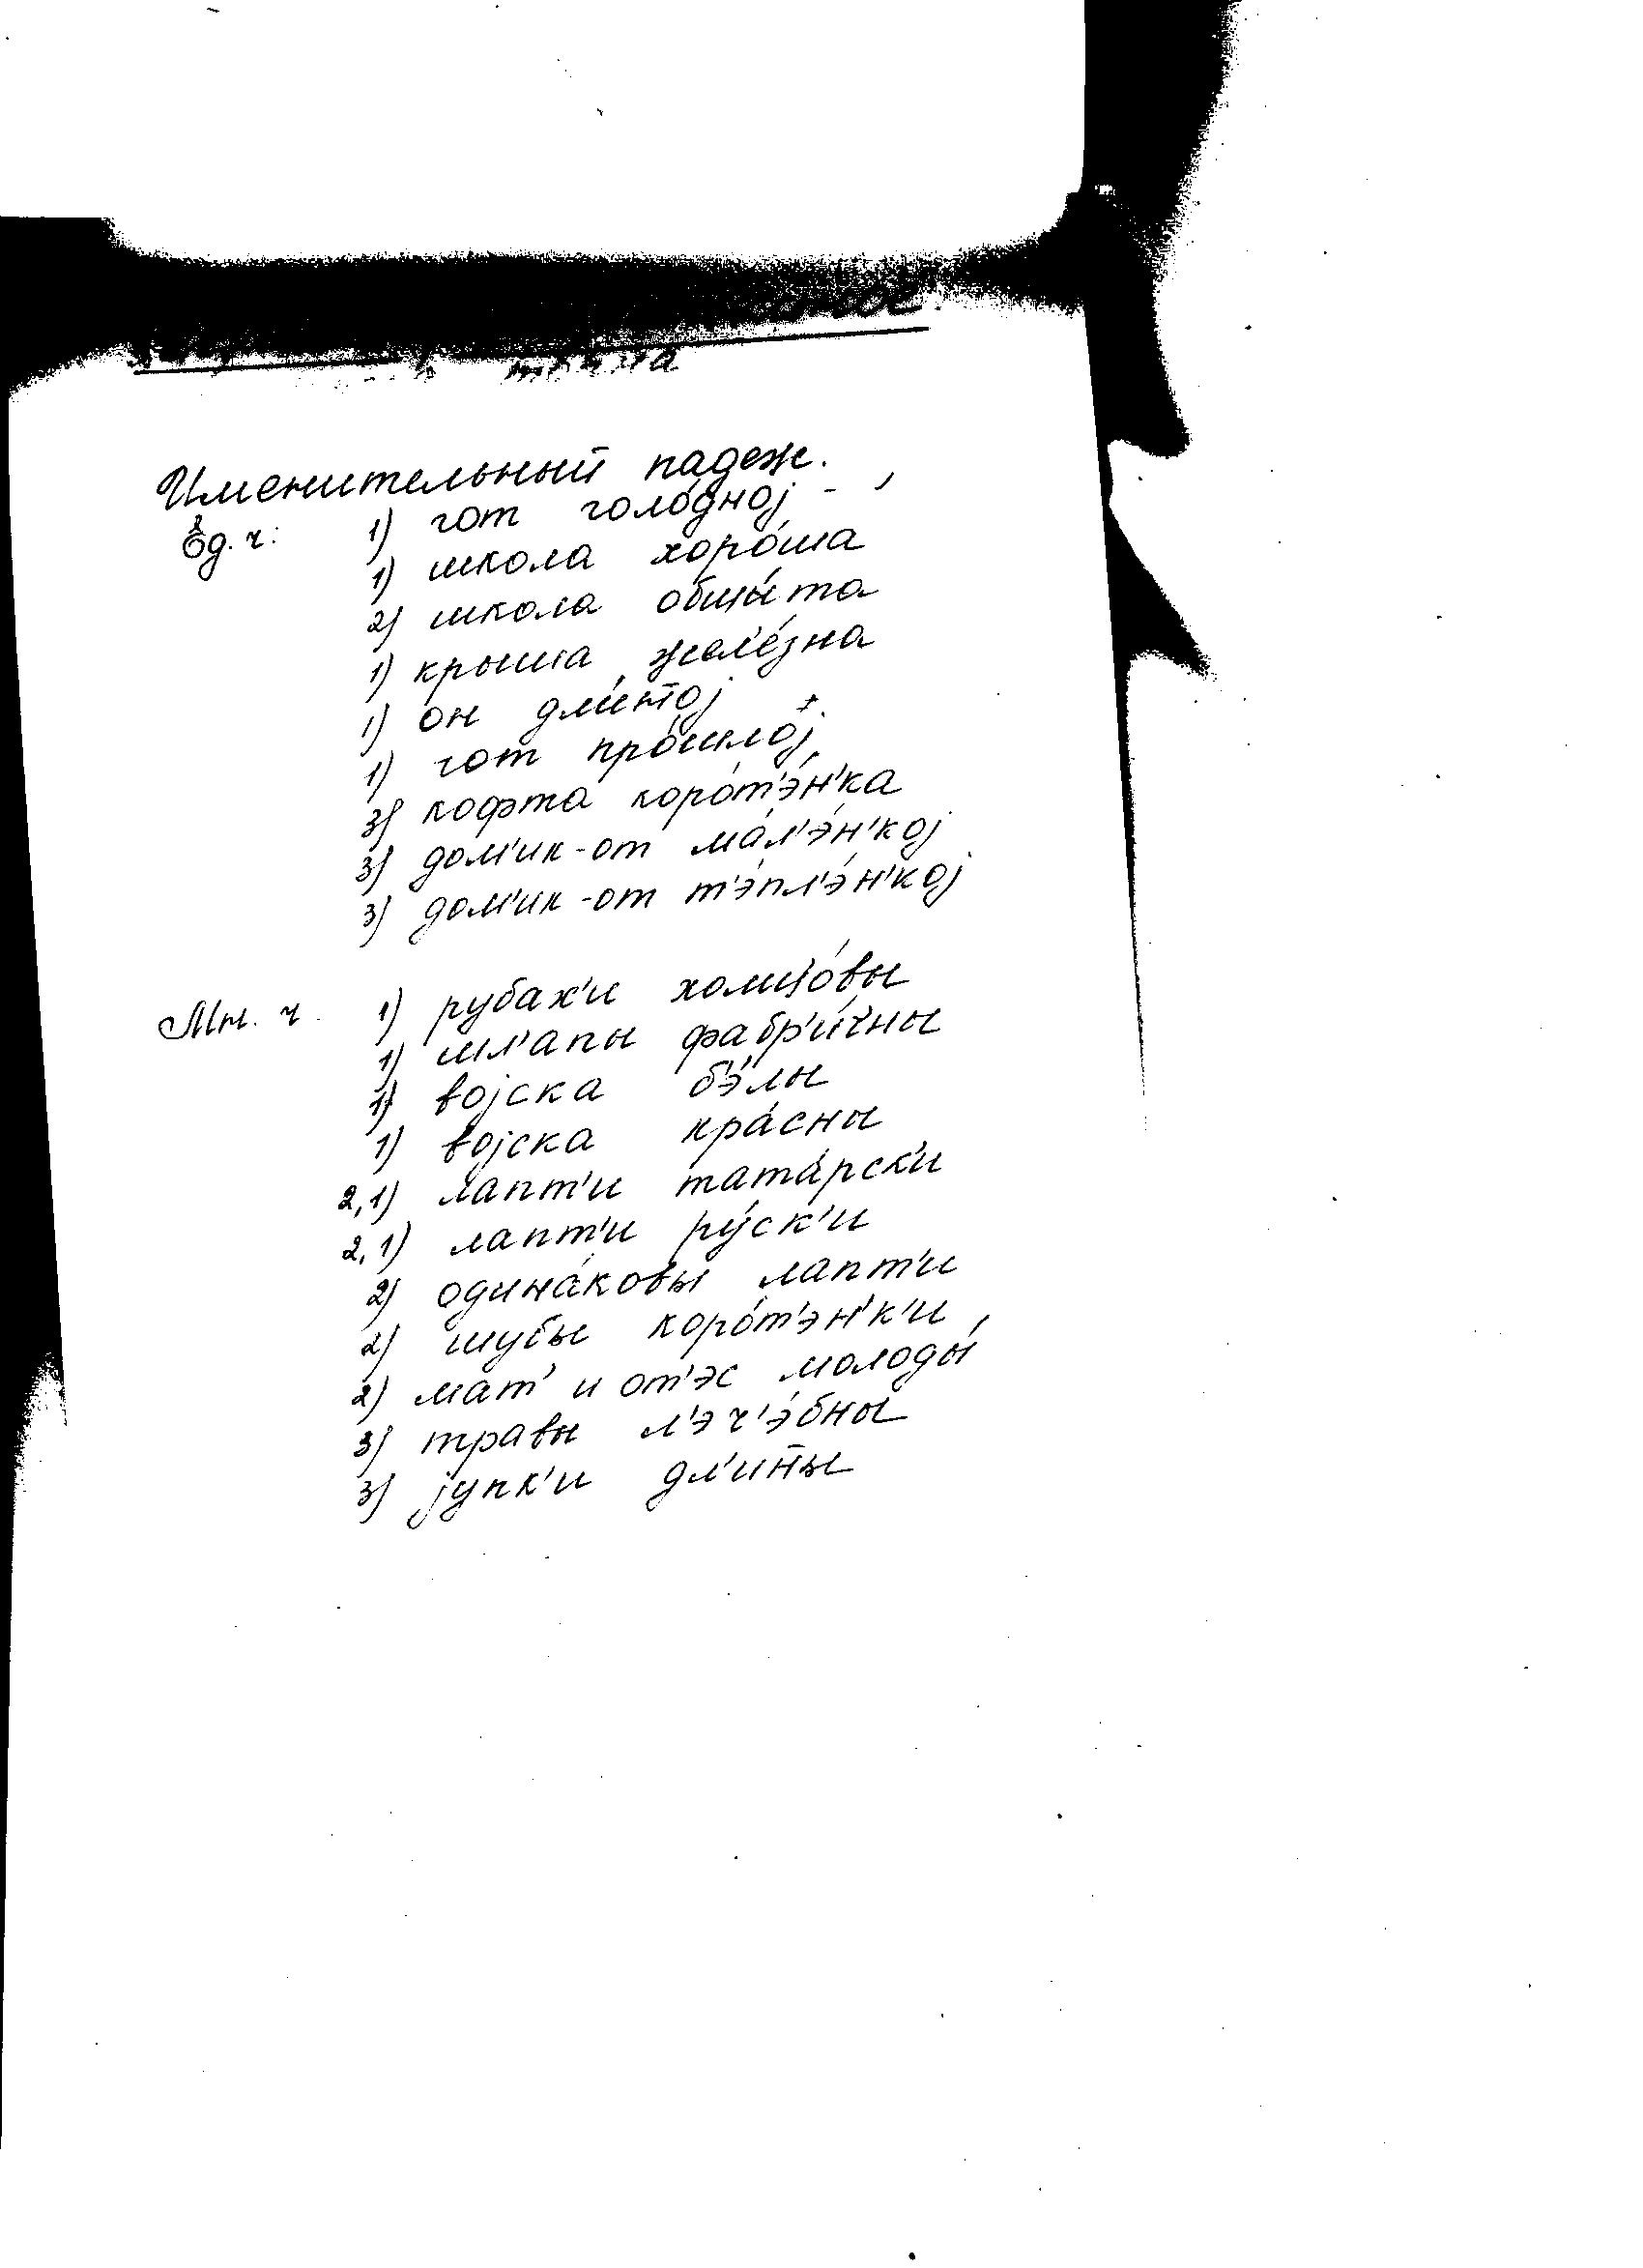 Именительный падеж.
Ед. ч: 1) гот голо́дној
1) школа хоро́ша
2) школа обшы́та
1) крыша жел'е́зна
1) он дл'и́н̄ој
1) гот про́шлој
3) кофта коро́т'э́н'ка
3) дом'ик-от ма́л'э́н'кој
3) дом'ик-от т'э́пл'э́н'кој
Мн. ч. 1) рубах'и холщо́вы
1) шл'апы фабр'и́чны
1) војска бэ́лы
1) војска кра́сны
2,1) лапт'и тата́рск'и
2,1) лапт'и ру́ск'и
2) одина́ковы лапт'и
2) шубы коро́т'эн'к'и
2) мат' и от'эс молоды́
3) травы л'эч'э́бны
3) јупк'и дл'ин̄ы